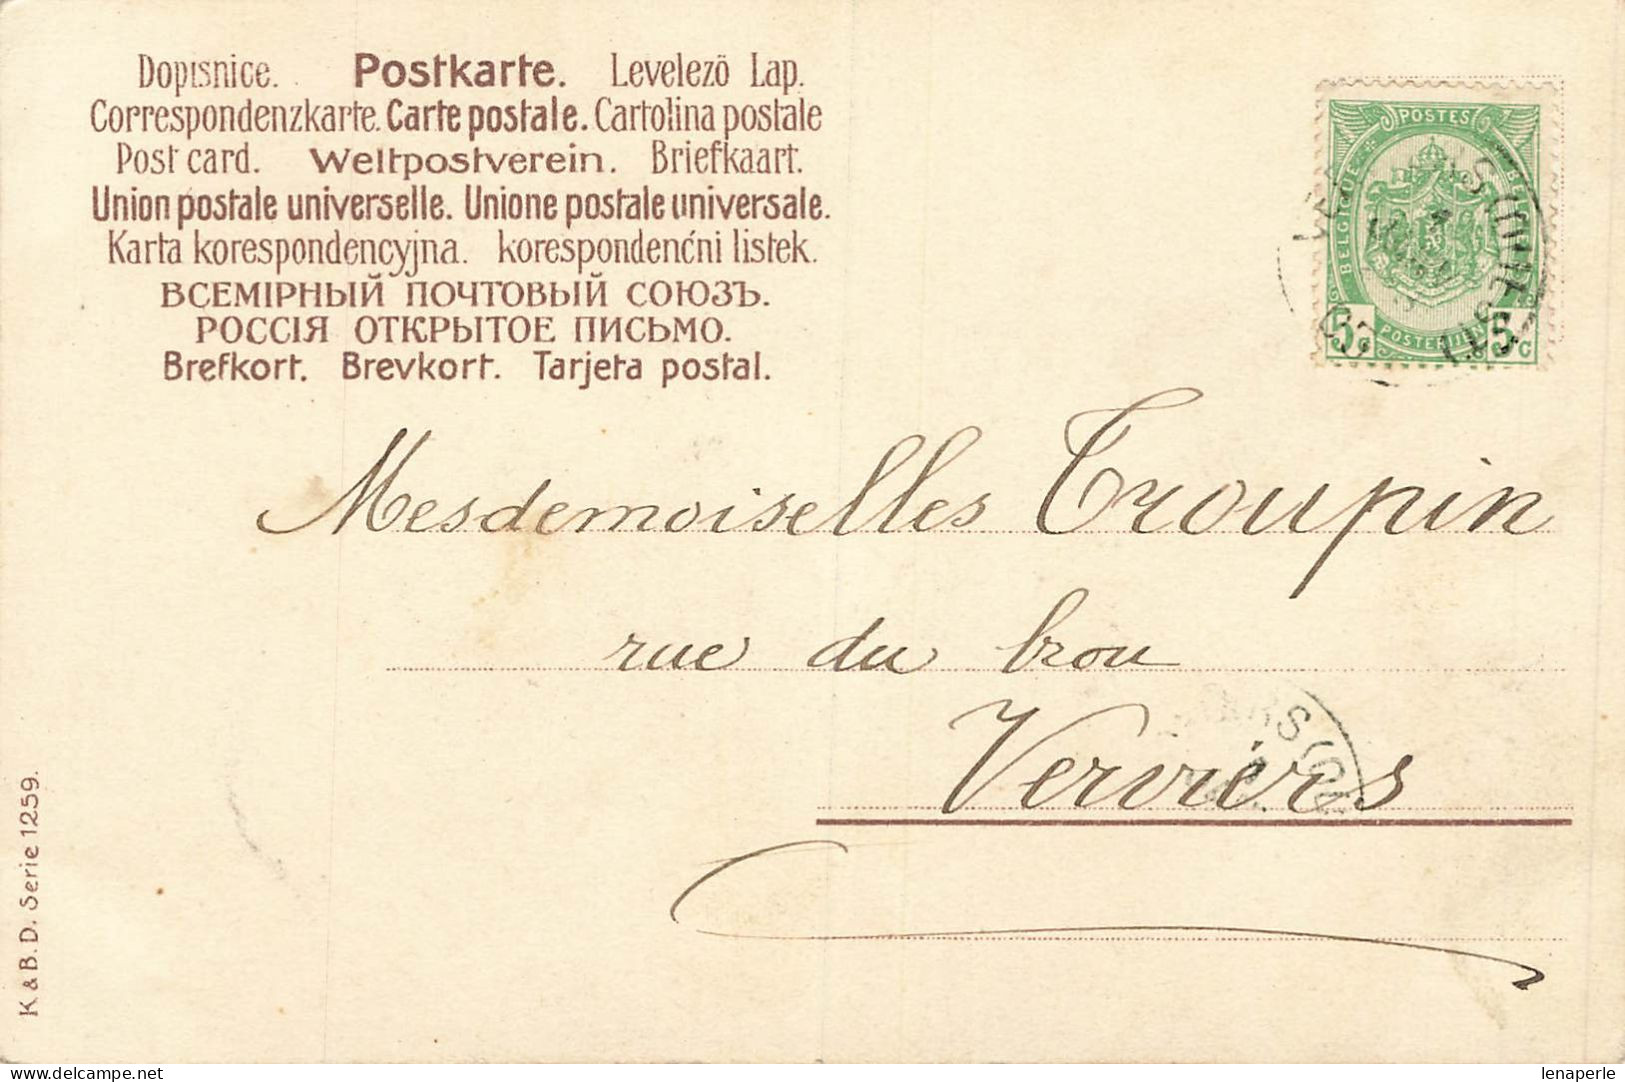 Dopisnice. Postkarte. Levelező Lap.
Correspondenzkarte. Carte postale. Cartolina postale
Post card. Weltpostverein. Briefkaart.
Union postale universelle. Unione postale universale.
Karta korespondencyjna. korespondenćni listek.
ВСЕМІРНЫЙ ПОЧТОВЫЙ СОЮЗЪ.
РОССІЯ ОТКРЫТОЕ ПИСЬМО.
Brefkort. Brevkort. Tarjeta postal.
POSTES
BELGIQUE
BELGIË
5c POSTERIJEN 5c
Mesdemoiselles Troupin
rue du brou
Verviers
K & B. D. Serie 1259.
lenaperle